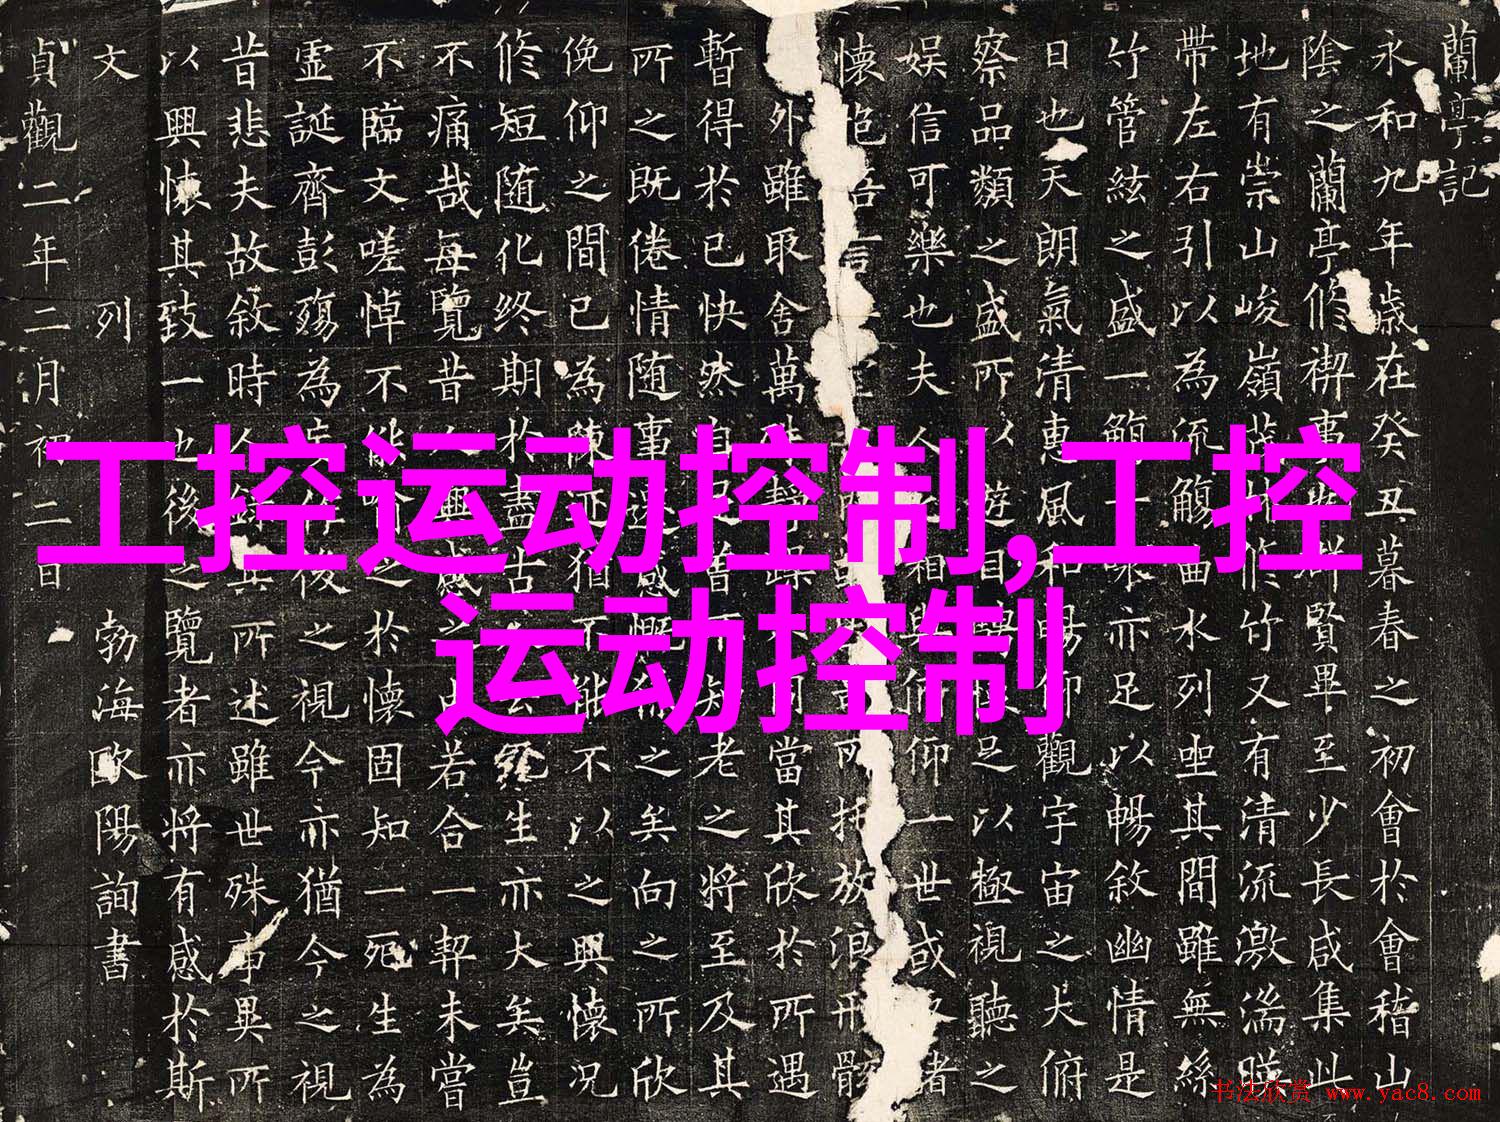 蘭亭記
永和九年歳在癸丑暮春之初會於會稽山
陰之蘭亭修禊事 群賢畢至少長咸集此
地有崇山峻嶺 修竹又有清流激湍暎
帶左右引以為流觴曲水列坐其間雖無絲
竹管絃之盛一觴一 亦足以暢敘幽情是
日也天朗氣清惠風和暢仰觀宇宙之大俯
察品類之盛所以遊目 足以極視聽之
娯信可樂也夫人 相與俯仰一世或 諸
懷抱 言 所托放浪形骸
外雖取舍萬 靜躁 當其欣於所遇
暫得於已快然自 老之將至及其
所之既倦情随事遷感慨 之矣向之所欣
俛仰之間已為陳迹猶不能不以之興懷況
修短随化终期於盡古 生亦大矣豈
不痛哉每覽昔人興感之 若合一契未嘗
不臨文嗟悼不能喻之於懷固知一死生為
虛誕齊彭殤為 後之視今亦猶今之視
昔悲夫故敘時人 其所述雖世殊事異所
以興懷其致一也後之覽者亦將有感於斯
文 列 勃海歐陽詢書
貞觀二年二月初二日
工控运动控制,工控
运动控制
书法欣赏 www.yac8.com